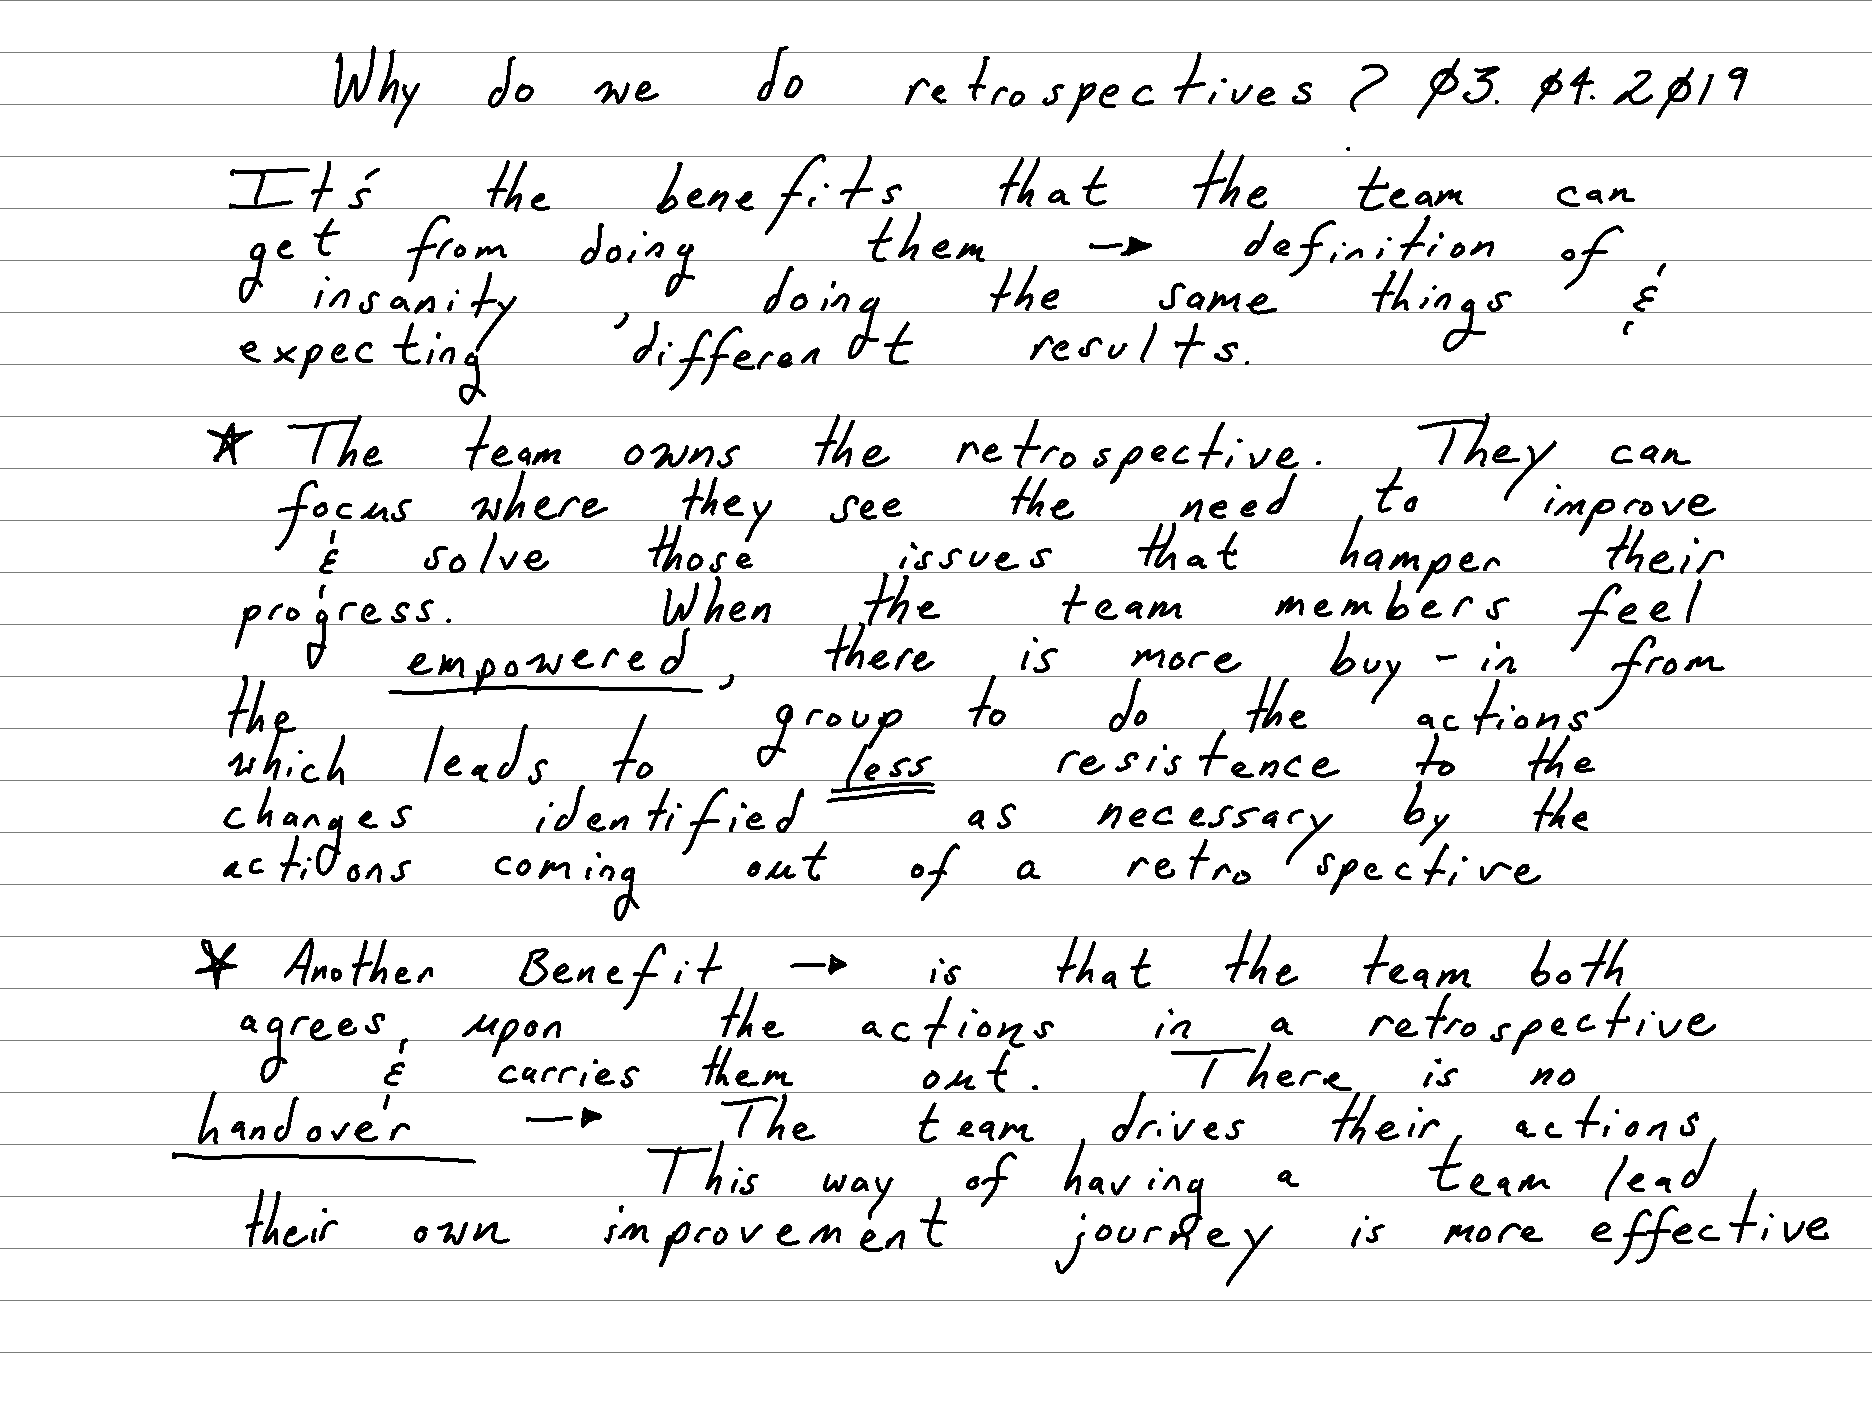 Why do we do retrospectives? 03.04.2019
It's the benefits that the team can
get from doing them → definition of
insanity, doing the same things &
expecting different results.
* The team owns the retrospective. They can
focus where they see the need to improve
& solve those issues that hamper their
progress. When the team members feel
empowered, there is more buy-in from
the group to do the actions
which leads to less resistence to the
changes identified as necessary by the
actions coming out of a retrospective
* Another Benefit → is that the team both
agrees upon the actions in a retrospective
& carries them out. There is no
handover → The team drives their actions
This way of having a team lead
their own improvement journey is more effective